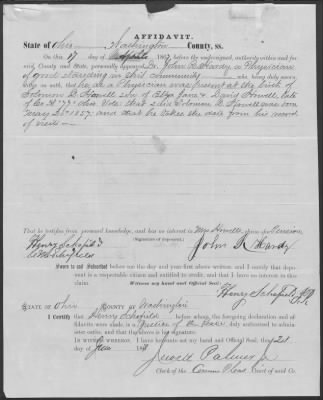 AFFIDAVIT.
State of Ohio Washington County, ss.
On this 17 day of April 186 before the undersigned, authority within and for
said, County and State, personally appeared Dr. John R Hardy a Physician
of good standing in this community who being duly
on oath, that he as a Physician was present at the birth of
Solomon B. Howell son of Eliza Jane & David Howell late
of Co. H 77th Ohio Vols. that said Solomon B. Howell was born
1857 and that he takes the date from his record
of visits
That he testifies from personal knowledge, and has no interest in Mrs Howell claim for Pension
Henry Schofield (Signatures of deponent.) John R Hardy
Sworn to and Subscribed before me the day and year first above written, and I certify that deponent
is a respectable citizen and entitled to credit, and that I have no interest in this claim.
Witness my hand and Official Seal:
Henry Schofield JP
STATE OF Ohio COUNTY OF Washington
I Certify that Henry Schofield before whom, the foregoing declaration and
affidavits were made, is a Justice of the Peace duly authorized to administer
oaths, and that the above is his signature.
IN WITNESS WHEREOF, I have hereunto set my hand and Official Seal, this 21st
day of June 186
Jewett Palmer Jr
Clerk of the Common Pleas Court of said Co.